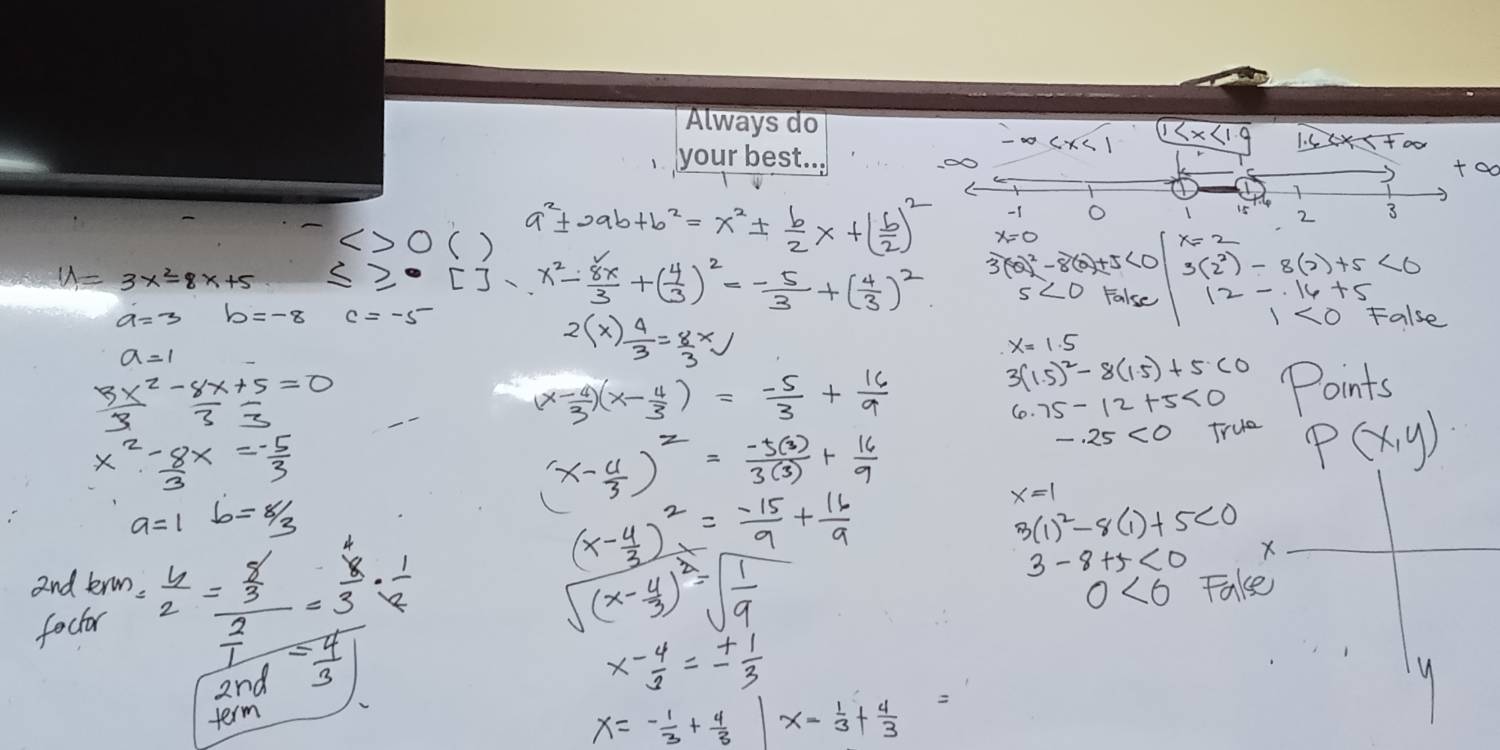 Always do
your best...
< > O ( )
≤ ≥ • [ ]
y = 3x²-8x+5
a=3 b=-8 c=-5
a=1
3x²/3 - 8x/3 + 5/3 = 0
x² - 8/3 x = -5/3
a=1 b=8/3
2nd term factor = b/2 = (8/3)/(2/1) = 8/3 · 1/2
4
2nd term = 4/3
a² ± 2ab + b² = x² ± b/2 x + (b/2)²
x² - 8x/3 + (4/3)² = -5/3 + (4/3)²
2(x) 4/3 = 8/3 x ✓
(x-4/3)(x-4/3) = -5/3 + 16/9
(x-4/3)² = -5(3)/3(3) + 16/9
(x-4/3)² = -15/9 + 16/9
√(x-4/3)² = √1/9
x-4/3 = ± 1/3
x = -1/3 + 4/3 | x = 1/3 + 4/3 =
-∞ < x < 1 1 < x < 1.9 1.6 < x < +∞
-∞ +∞
-1 0 1 1.5 1.6 2 3
x=0
3(0)² - 8(0) + 5 < 0
5 < 0 False
x=2
3(2²) - 8(2) + 5 < 0
12 - 16 + 5
1 < 0 False
x=1.5
3(1.5)² - 8(1.5) + 5 < 0
6.75 - 12 + 5 < 0
-.25 < 0 True
x=1
3(1)² - 8(1) + 5 < 0
3 - 8 + 5 < 0
0 < 0 False
Points
P(x,y)
x
y